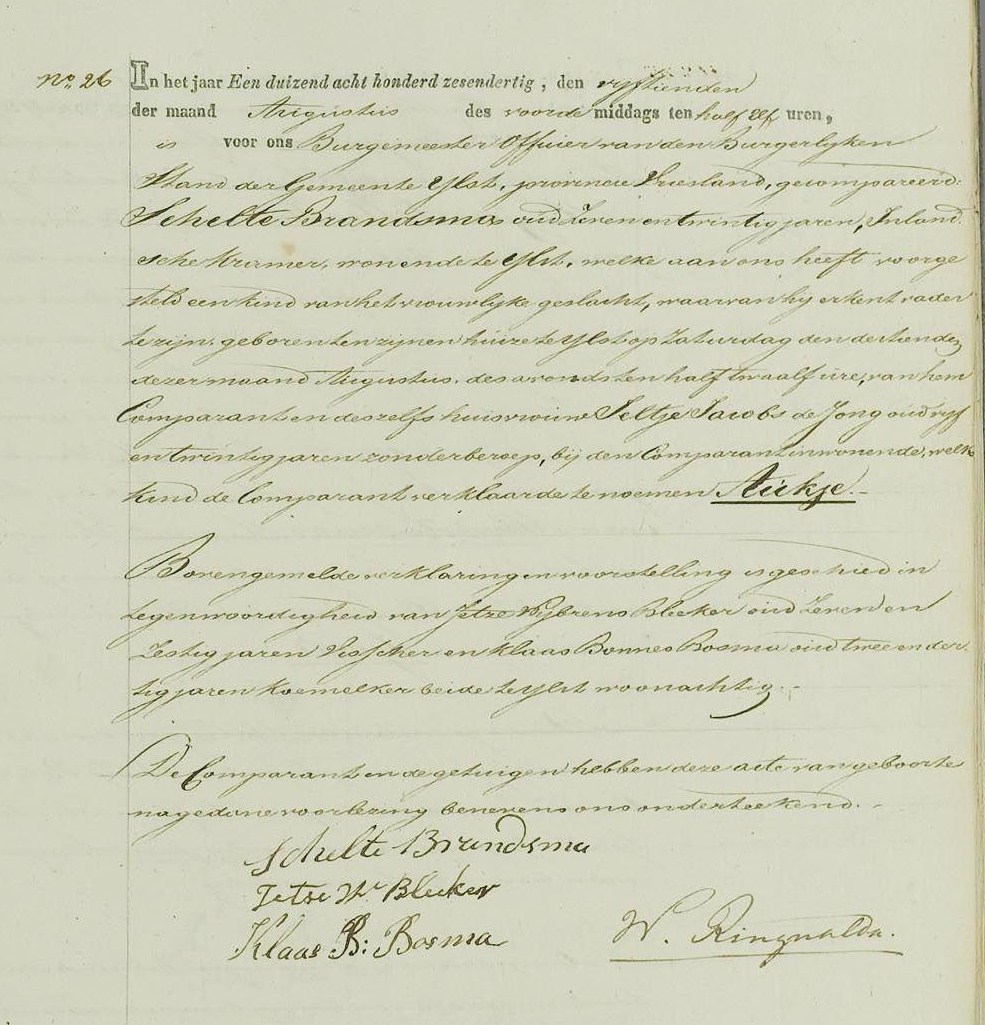 No. 26 In het jaar Een duizend acht honderd zesendertig, den vyftienden
der maand Augustus des voorde middags ten half elf uren,
is voor ons Burgemeester Officier van den Burgerlyken
Stand der Gemeente Ylst, provincie Vriesland, gecompareerd:
Schelte Brandsma oud Zeven en twintig jaren, Inland
sche Kramer, wonende te Ylst, welke aan ons heeft voorge
steld een kind van het vrouwlyke geslacht, waarvan hy erkent vader
te zijn, geboren ten zijnen huize te Ylst op Zaturdag den dertienden
dezer maand Augustus, des avonds ten half twaalf ure, van hem
Comparant en deszelfs huisvrouw Jeltje Jacobs de Jong oud vyf
en twintig jaren zonder beroep, bij den Comparant inwonende, welk
kind de Comparant verklaarde te noemen Aukje.-
Bovengemelde verklaring en voorstelling is geschied in
tegenwoordigheid van Jetze Wybrens Bleeker oud Zeven en
Zestig jaren Visscher en Klaas Bonnes Bosma oud twee en der
tig jaren Koemelker beide te Ylst woonachtig.-
De Comparant en de getuigen hebben deze acte van geboorte
na gedane voorlezing benevens ons onderteekend.-
Schelte Brandsma
Jetse W. Bleeker
Klaas B: Bosma
W. Ringnalda.